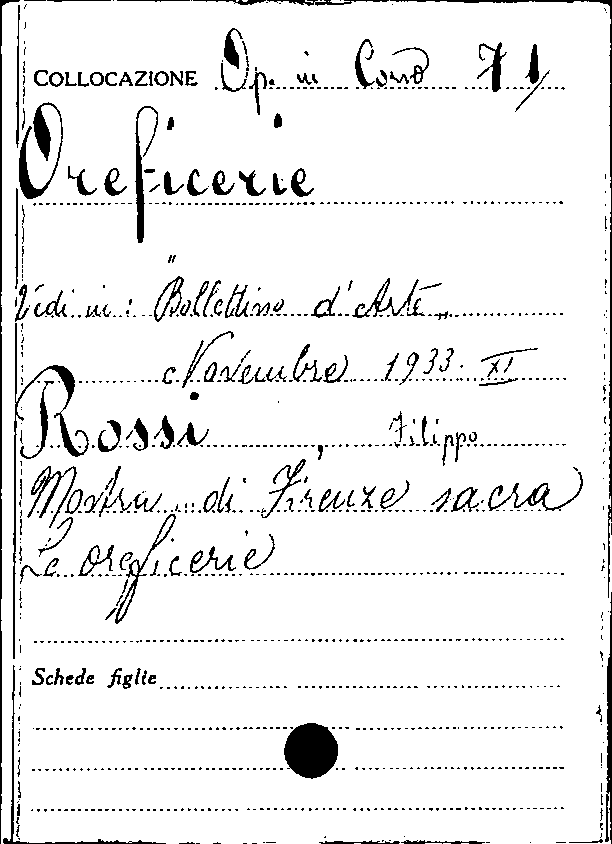 COLLOCAZIONE Op. in Corso 71
Oreficerie
Vedi in: "Bollettino d'Arte„
Novembre 1933. XI
Rossi, Filippo
Mostra di Firenze sacra
Le oreficerie
Schede figlie